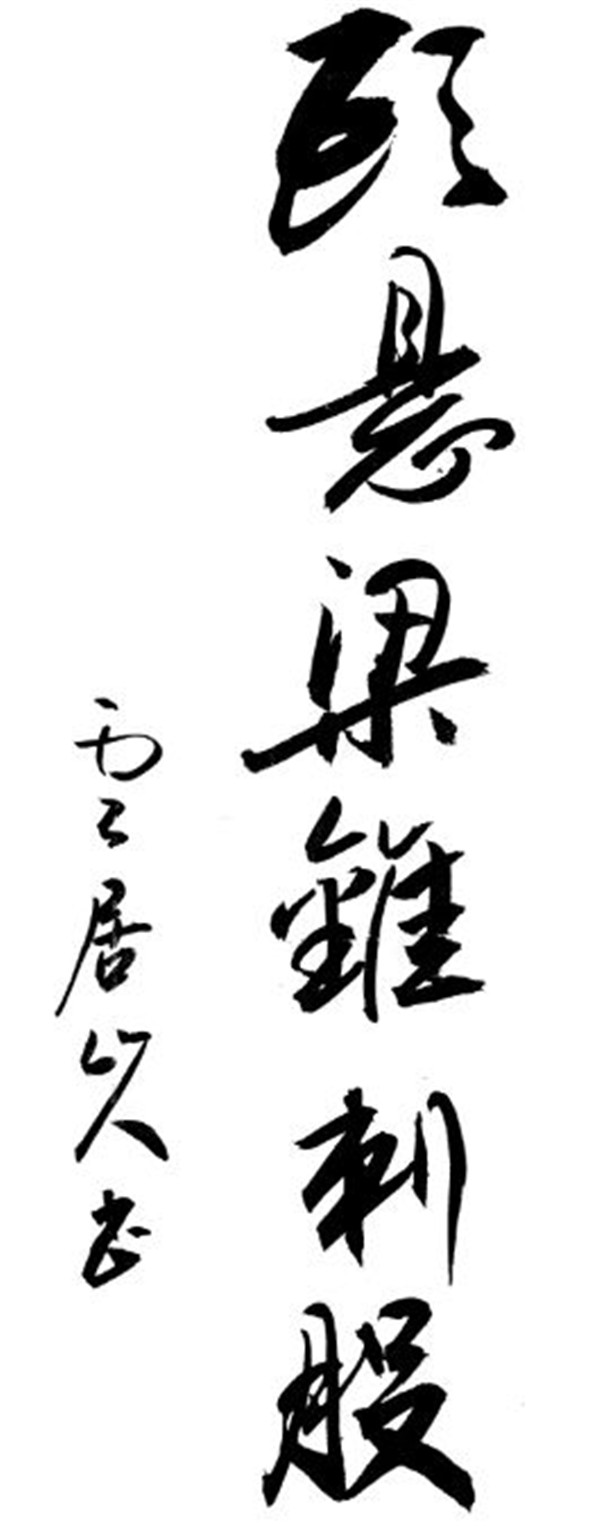 頭懸梁錐刺股
雲居山人书